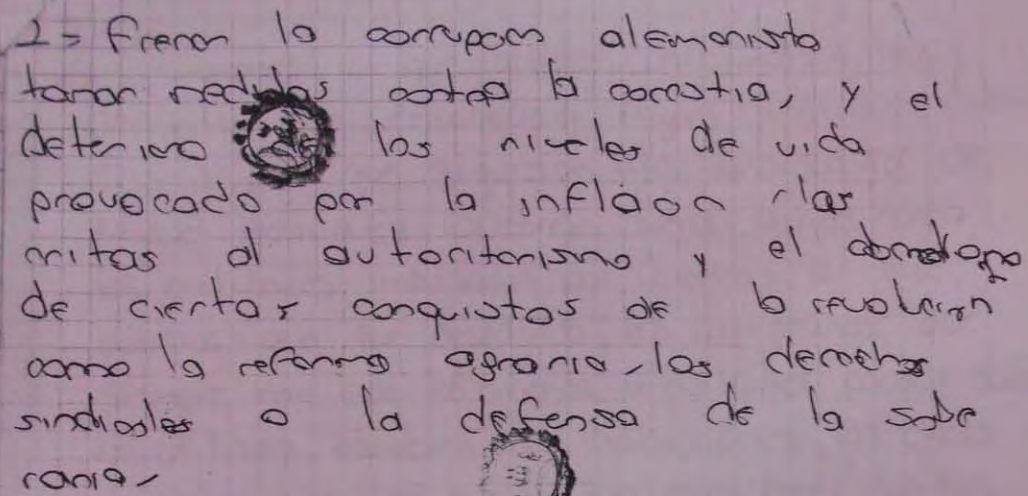 2= Frenar la corrupcon alemanista
tomar medidas contra la carestia, y el
deterioro de los niveles de vida
provocado por la inflacion, las
criticas al autoritarismo y el abandono
de ciertas conquistas de la revolucion
como la reforma agraria, los derechos
sindicales o la defensa de la sobe
rania,